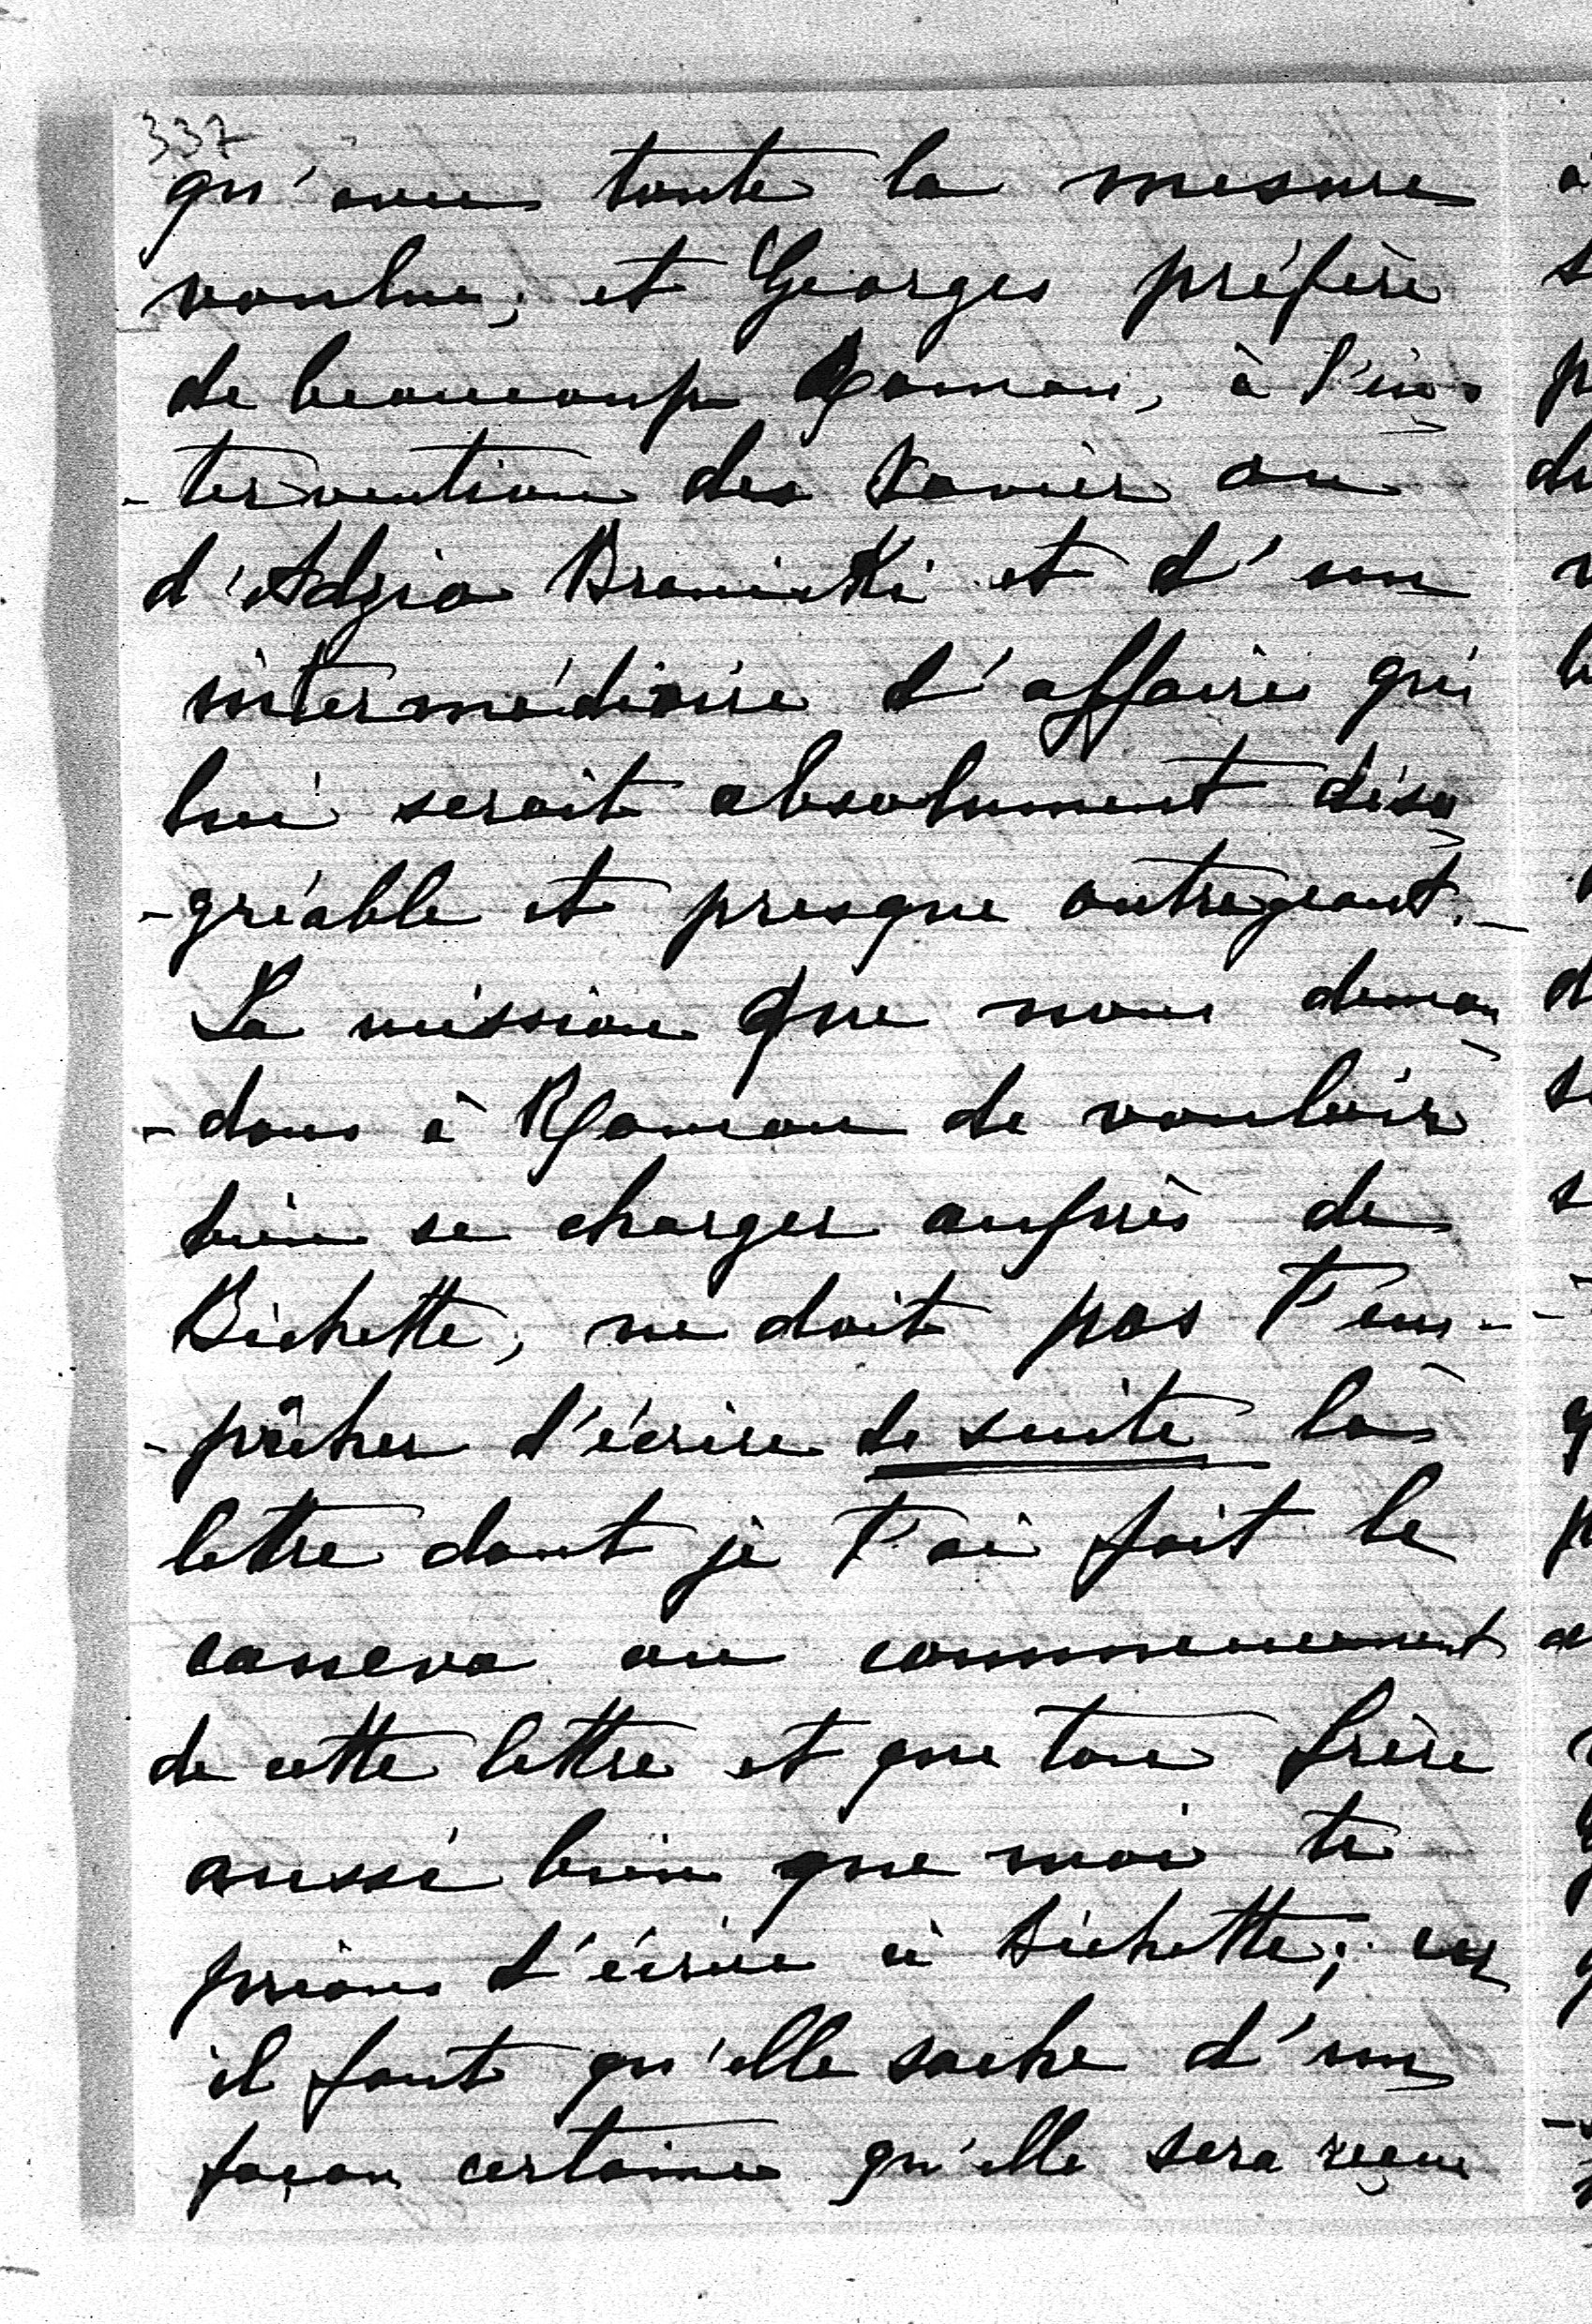 337
qu'avec toute la mesure
voulue; et Georges préfère
de beaucoup Roman, à l'in-
-tervention des Xavier ou
d'Adzio Branicki et d'un
intermédiaire d'affaires qui
lui serait absolument désa
-gréable et presque outrageant. _
La mission que nous deman
-dons à Roman de vouloir
bien se charger auprès de
Bichette, ne doit pas t'em-
-pêcher d'écrire de suite la
lettre dont je t'ai fait le
caneva au commencement
de cette lettre et que ton frère
aussi bien que moi te
prions d'écrire à Bichette; car
il faut qu'elle sache d'une
façon certaine qu'elle sera reçue